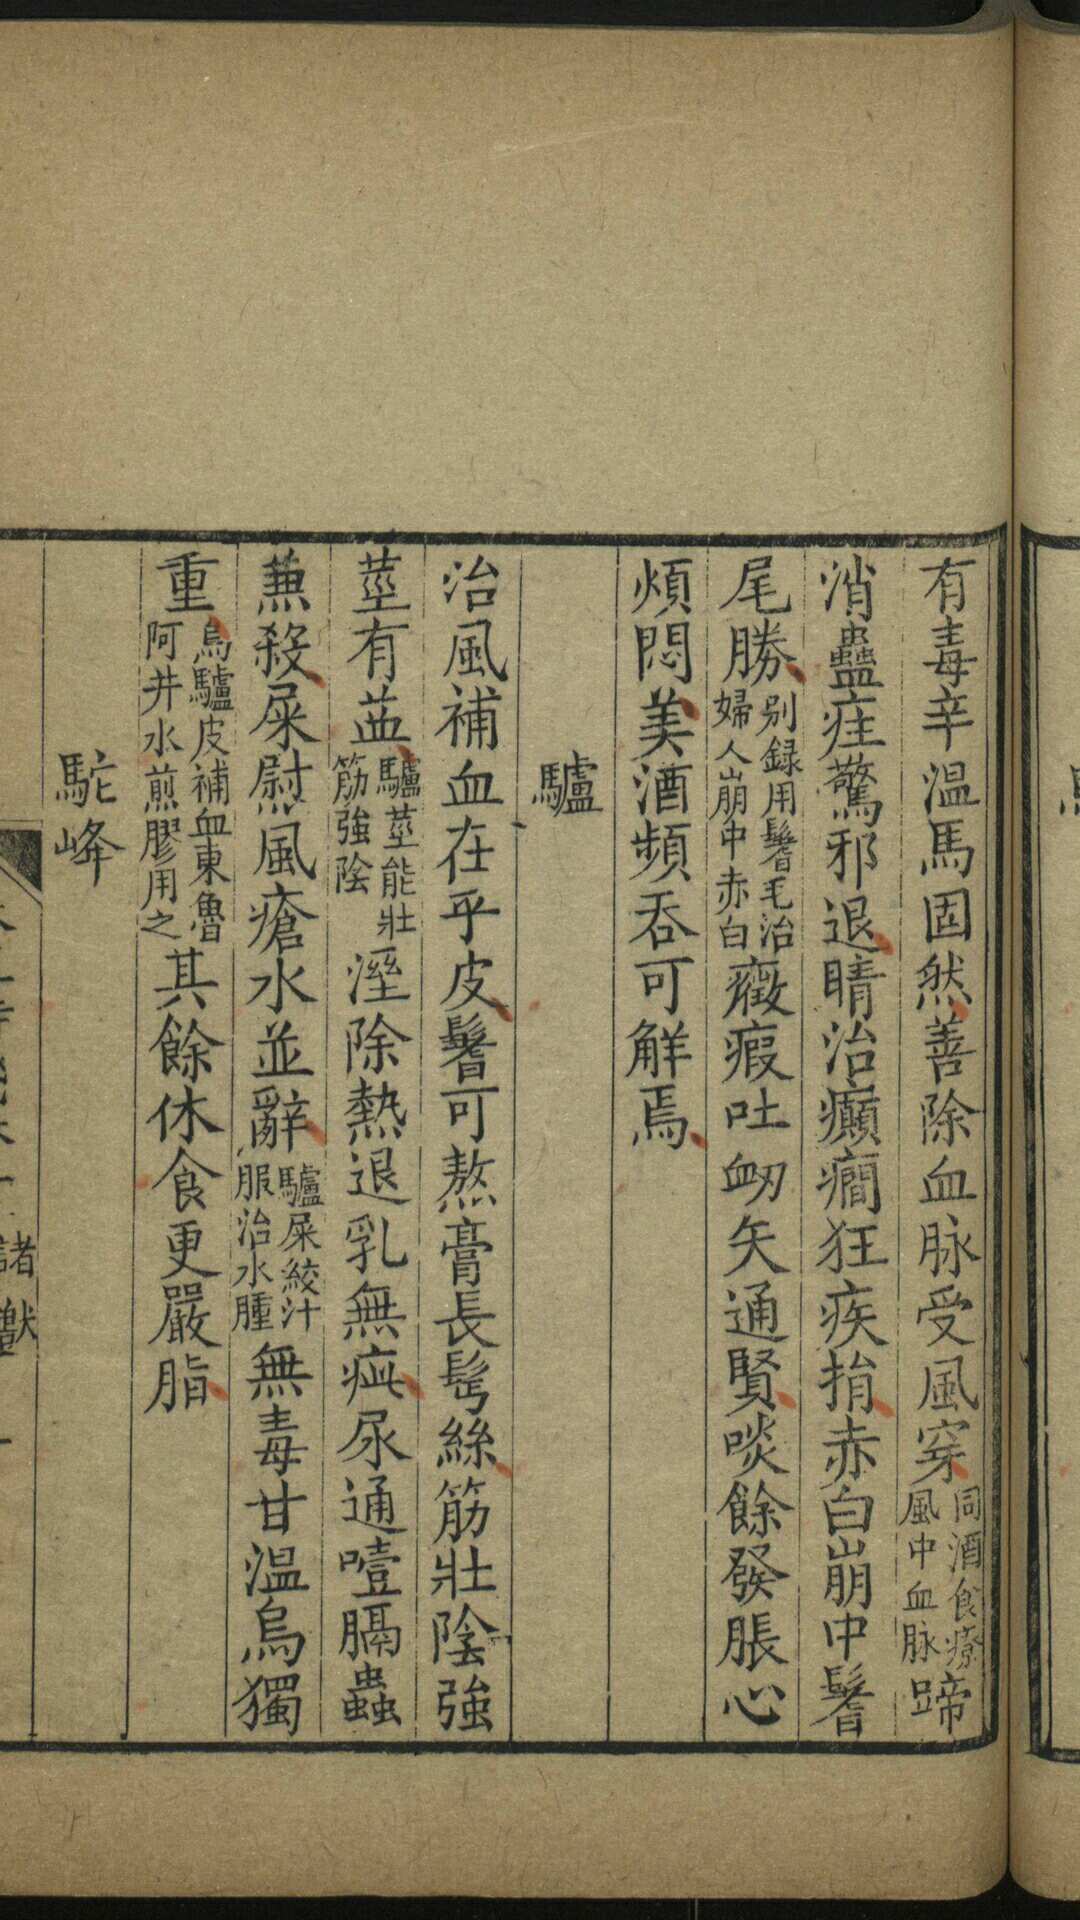 有毒辛溫馬固然善除血脉受風穿同酒食療風中血脉蹄
消蠱疰驚邪退睛治癲癎狂疾捐赤白崩中鬐
尾勝别録用鬐毛治婦人崩中赤白癥瘕吐衂矢通賢啖餘發脹心
煩悶美酒頻吞可解焉
驢
治風補血在乎皮鬐可熬膏長髩絲筋壯陰強
莖有葢驢莖能壯筋強陰溼除熱退乳無痏尿通噎膈蟲
兼殺屎熨風瘡水並辭驢屎絞汁服治水腫無毒甘溫烏獨
重烏驢皮補血東魯阿井水煎膠用之其餘休食更嚴脂
駝峰
諸獸